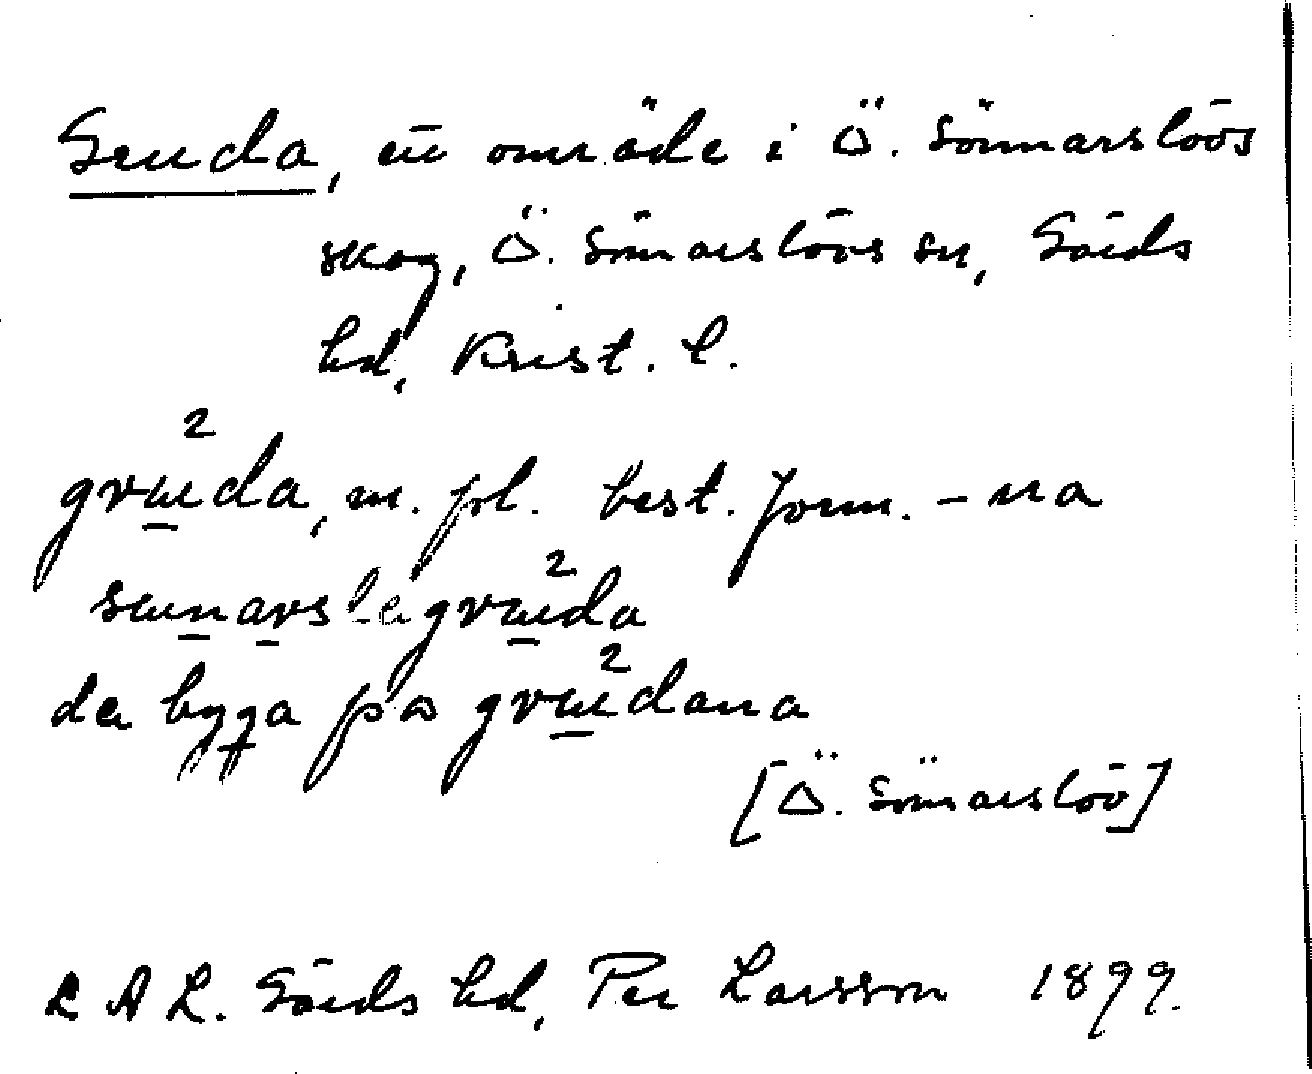 Gruda, ett område i Ö. Sönnarslövs
skog, Ö. Sönnarslövs sn, Gärds
hd, Krist. l.
græuda, m. pl. best. form. -na
da bygga på græudana
[Ö. Sönnarslöv]
L A L. Gärds hd, Per Larsson 1899.